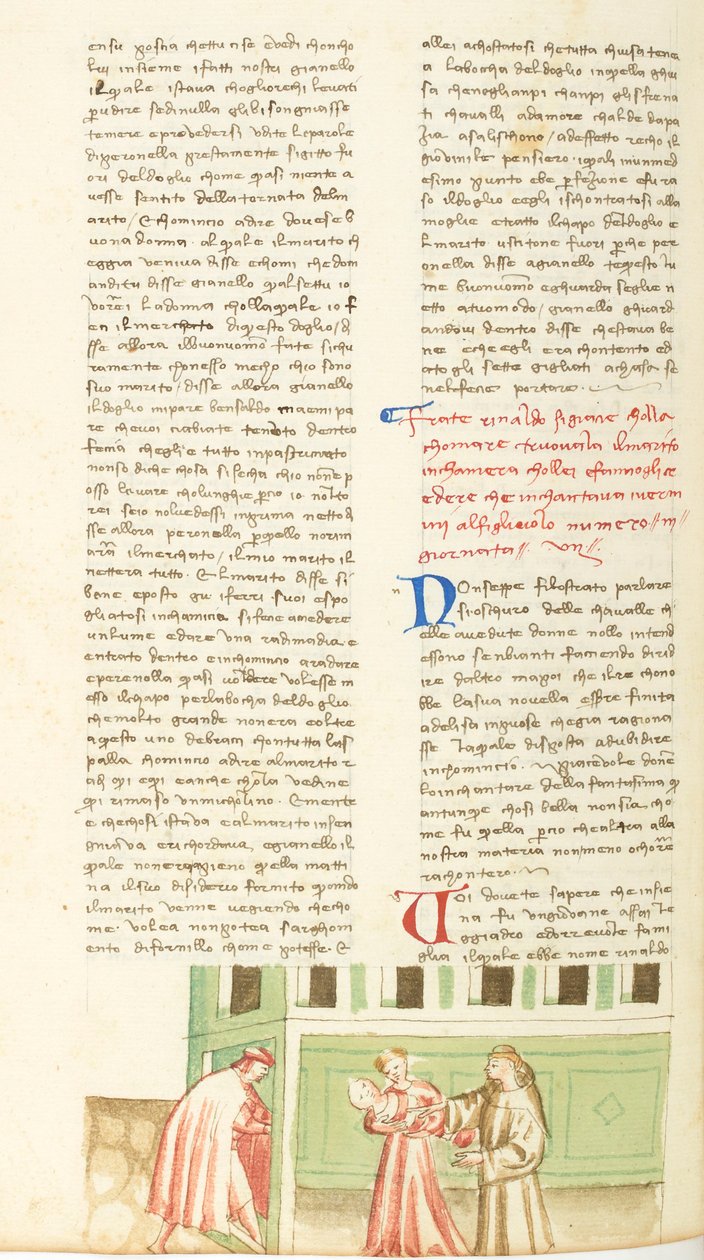 ensu poscia chettu ci se evedi choncho
lui insieme i fatti nostri gianello
il quale istava chogliorechi levati
p udire sedinulla gli bisongniasse
temere e provedersi udite le parole
di peronella prestamente si gitto fu
ori del doglio e chome quasi niente a
vesse sentito della tornata delm
arito / E chomincio a dire dove se b
uona donna · al quale il marito ch
eggia veniva disse echomi che dom
andi tu disse gianello qual se ttu io
vorrei la donna cholla quale io f
eci il merchato di questo doglio / di
sse allora il buonuomo fate sichu
ramente chonesso mecho chio sono
suo marito / disse allora gianello
il doglio mi pare ben saldo ma e mi pa
re che voi ci abiate tenuto dentro
feccia che gli e tutto inpastricciato
non so di che chosa si secha chio none p
osso levare cholunghie pcio io nollto
rei se io nol vedessi inprima netto di
sse allora peronella pquello non rim
arra il merchato / il mio marito il
nettera tutto · E l marito disse si
bene e posto giu i ferri suoi e spo
gliatosi in chamicia si fece acendere
un lume e dare una radimadia e
entrato dentro e inchomincio a radere
e peronella quasi vedere volesse in
esso il chapo per la bocha del doglio
che molto grande non era e oltre
a questo uno de bracci chon tutta las
palla chomincio a dire al marito r
adi qui e qui e anche chola vedine
qui rimaso un micholino · E mente
e che chosi istava e al marito insen
gniava e richordava · e gianello il
quale non era pieno quella matti
na il suo disiderio fornito quando
il marito venne vegiendo che cho
me · volea non potea sarghom
ento di fornillo chome potesse · E
allei achostatosi che tutta chiusa tenea
a la bocha del doglio in quella ghui
sa che negli anpi chanpi gli sfrena
ti chavalli damore chalde da pa
zia a salischono / ad effetto recho il
giovinile pensiero · i quali in un med
esimo punto ebe pfezione e fu ra
so il doglio e egli ischontratosi alla
moglie e tratto il chapo del doglio e
l marito uscitone fuori pche per
onella disse a gianello te questo lu
me buonuomo e ghuarda se gli e n
etto a tuo modo / gianello ghuard
andovi dentro disse che stava be
ne e che egli era chontento ed
ato gli sette gigliati a chasa se
nel fecie portare ·
Frate rinaldo si giacie cholla
chomare truovala il marito
in chamera chollei e fannogli cr
edere che inchantava i verm
ini al figliuolo numero // iij //
giornata // vij //
Non seppe filostrato parlare
si oschuro delle chavalle ch
elle avedute donne nollo intend
essono senbianti faciendo di rid
ire daltro ma poi che il re chono
bbe la sua novella essere finita
ad elisa inpuose che gia ragiona
sse la quale disposta a dubidire
inchomincio · piacevole donne
lo inchantare della fantasima qu
antunque chosi bella non sia cho
me fu quella pcio che altra alla
nostra materia nonmeno ochorre
rachontero ·
Voi dovete sapere che in sie
na fu un giovane assai le
ggiadro e donrevole fami
glia il quale ebbe nome rinaldo